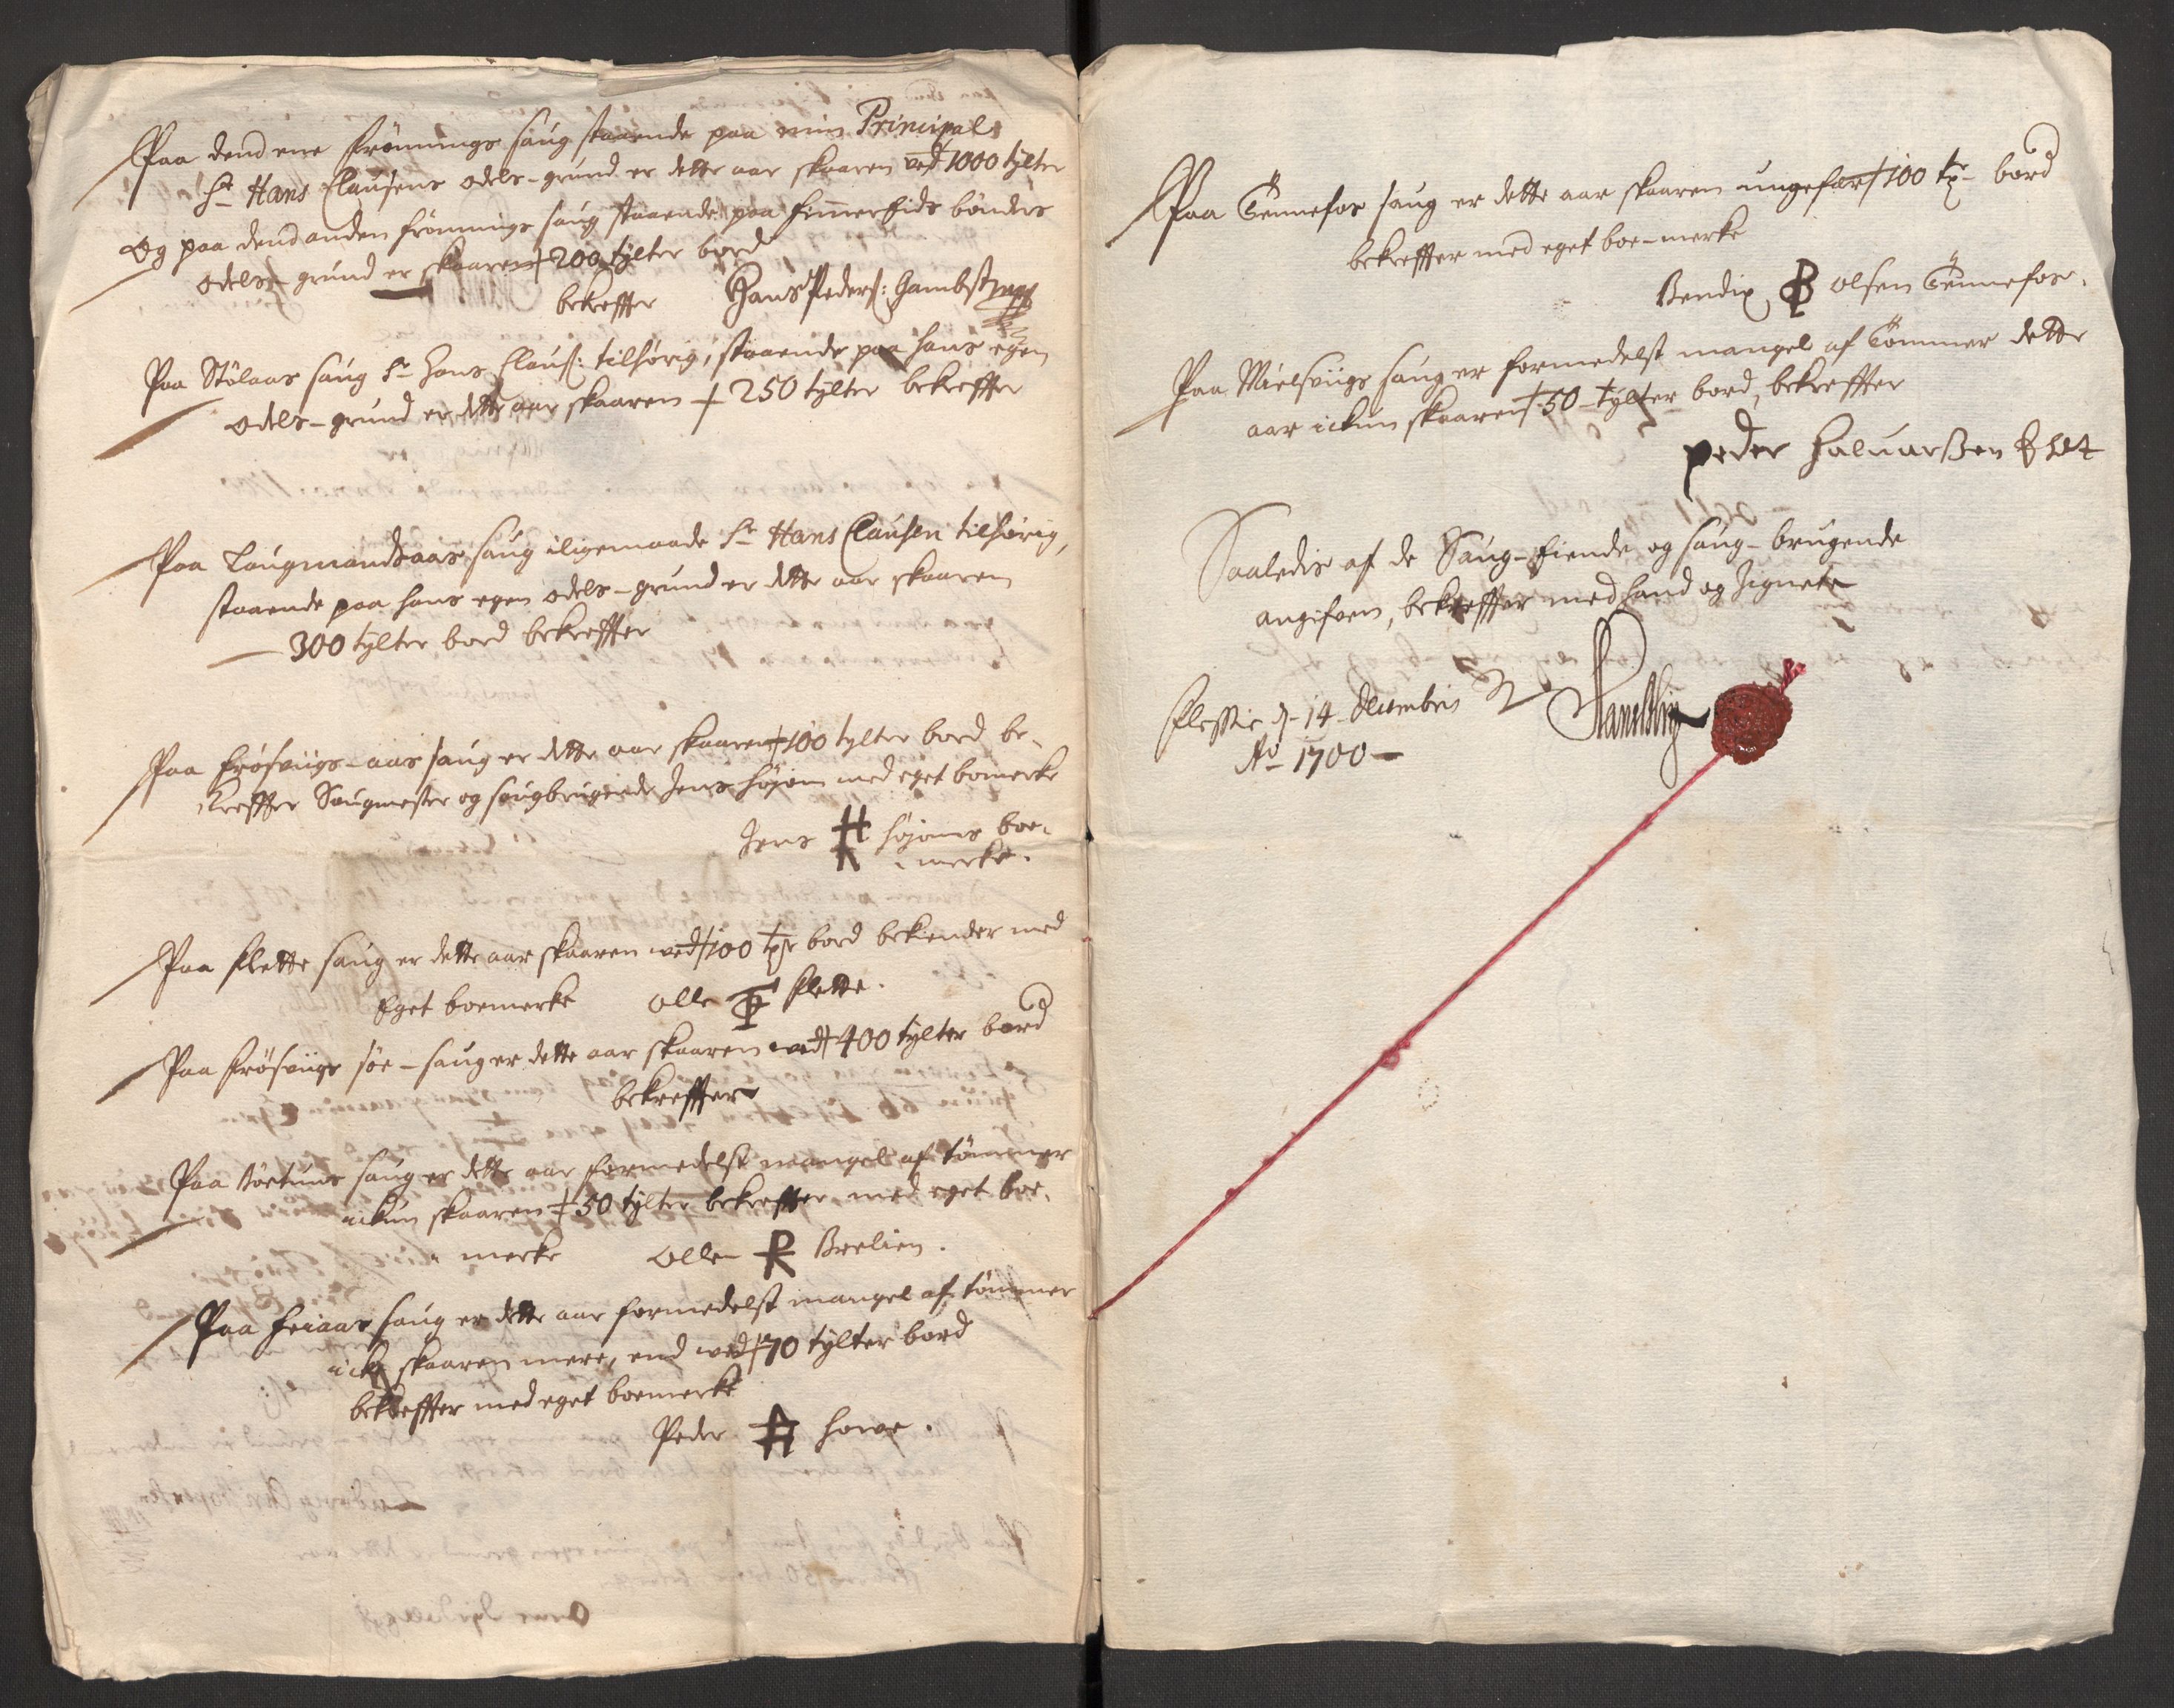 Paa dend ene Frönnings saug staaende paa min Principal
Sr Hans Clausens odels-grund er dette aar skaaren ved 1000 tylter
Og paa dend anden Frönnings saug staaende paa Fimreheids bönders
odels-grund er skaaren 200 tylter bord
bekreffter Hans Peders: Gambst
Paa Stölaas saug Sr Hans Claus: tilhörig, staaende paa hans egen
odels-grund er dette aar skaaren 250 tylter bekreffter
Paa Laugmandsaas saug iligemaade Sr Hans Clausen tilhörig,
staaende paa hans egen odels-grund er dette aar skaaren
300 tylter bord bekreffter
Paa Frösviigs-aas saug er dette aar skaaren 100 tylter bord be-
kreffter Saugmester og saugbrugende Jens Höjom med eget bomerke
Jens Höjoms boe-
merke.
Paa Flette saug er dette aar skaaren ved 100 tyltr bord bekiender med
Eget boemerke Olle Flette.
Paa Frösviigs söe-saug er dette aar skaaren ved 400 tylter bord
bekreffter
Paa Nörtuns saug er dette aar formedelst mangel af tömmer
ickun skaaren 50 tylter bekreffter med eget boe-
merke Ollen Brelien.
Paa Feiaas saug er dette aar formedelst mangel af tömmer
icke skaaren mere, end ved 70 tylter bord
bekreffter med eget boemerke
Peder Howe.
Paa Tennefos saug er dette aar skaaren ungefær 100 tr bord
bekreffter med eget boe-merke
Bendix Olsen Tennefos.
Paa Mielsviigs saug er formedelst mangel af Tömmer dette
aar ickun skaaren 50 tylter bord, bekreffter
peder Haluorsen
Saaledis af de Saug-Eiende og saug-brugende
angifven, bekreffter med Hand og Zignete
d. 14 Decembris
Ao 1700